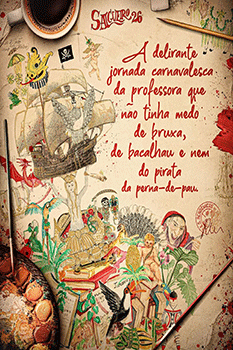 SALGUEIRO 26
A delirante
jornada carnavalesca
da professora que
não tinha medo
de bruxa,
de bacalhau e nem
do pirata
da perna-de-pau.